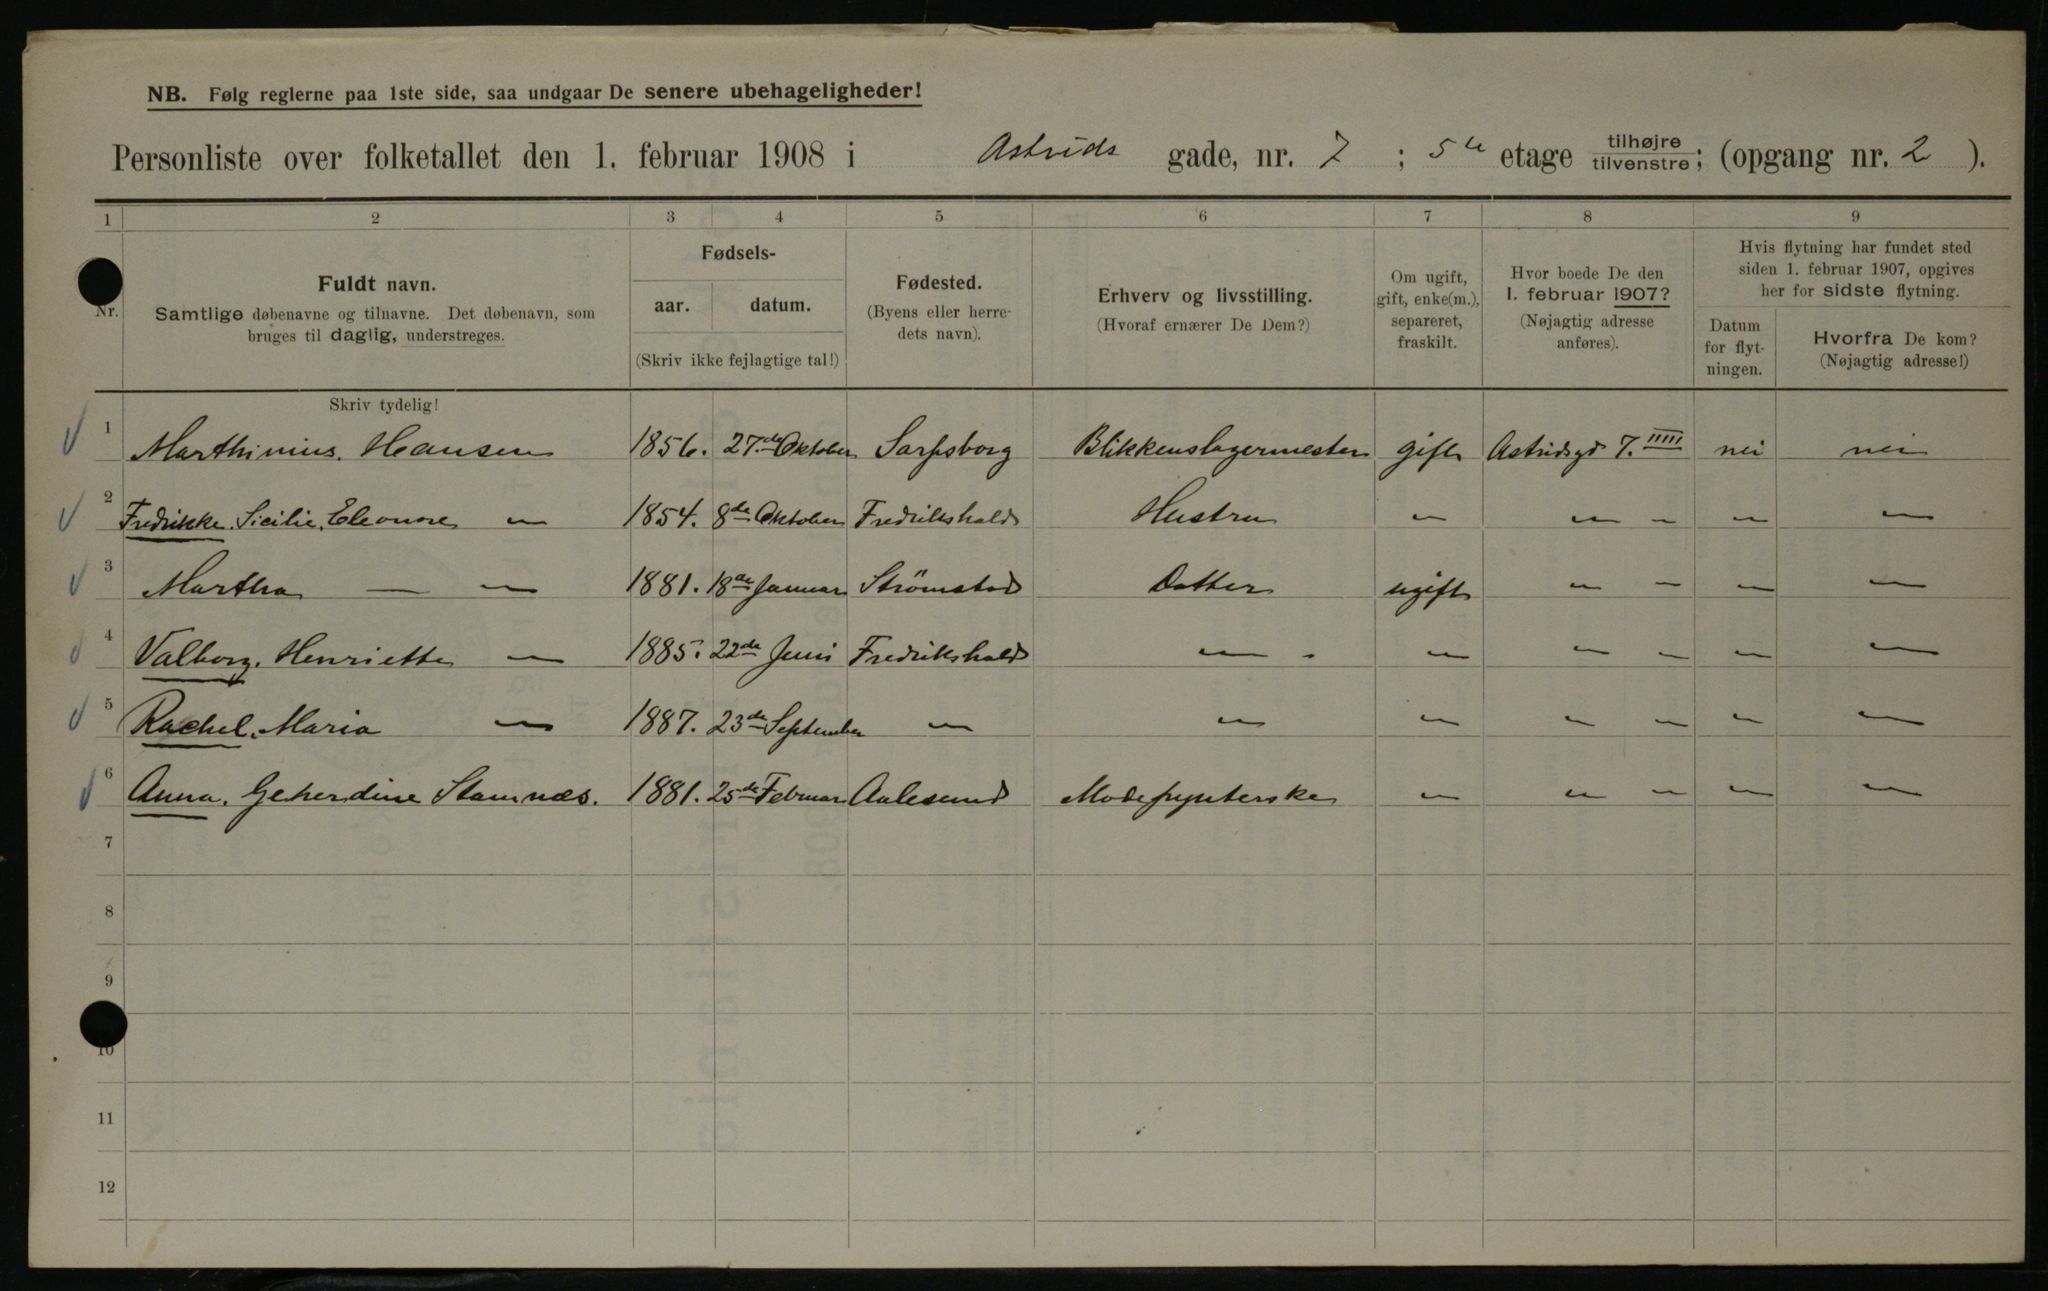 NB. Følg reglerne paa 1ste side, saa undgaar De senere ubehageligheder!
Personliste over folketallet den 1. februar 1908 i Astrids gade, nr. 7 ; 5te etage tilhøjre tilvenstre; (opgang nr. 2 ).
1 2 3 4 5 6 7 8 9
Nr.
Fuldt navn.
Samtlige døbenavne og tilnavne. Det døbenavn, som
bruges til daglig, understreges.
Skriv tydelig!
Fødsels-
aar. datum.
(Skriv ikke fejlagtige tal!)
Fødested.
(Byens eller herre-
dets navn).
Erhverv og livsstilling.
(Hvoraf ernærer De Dem?)
Om ugift,
gift, enke(m.),
separeret,
fraskilt.
Hvor boede De den
1. februar 1907?
(Nøjagtig adresse
anføres).
Hvis flytning har fundet sted
siden 1. februar 1907, opgives
her for sidste flytning.
Datum
for flyt-
ningen.
Hvorfra De kom?
(Nøjagtig adresse!)
1 Marthinius. Hansen 1856. 27.de Oktober Sarpsborg Blikkenslagermester gift Astridsgd 7. IIIII nei nei
2 Fredrikke. Sicilie. Eleonore " 1854. 8de Oktober Fredrikshald Hustru " " " " "
3 Martha — " 1881. 18de Januar Strömstad Datter ugift " " " "
4 Valborg. Henriette " 1885. 22de Juni Fredrikshald " " " " " " "
5 Rachel. Maria " 1887. 23de September " " " " " " "
6 Anna. Geherdine Stamnæs. 1881. 25de Februar Aalesund Modepynterske " " " " "
7
8
9
10
11
12